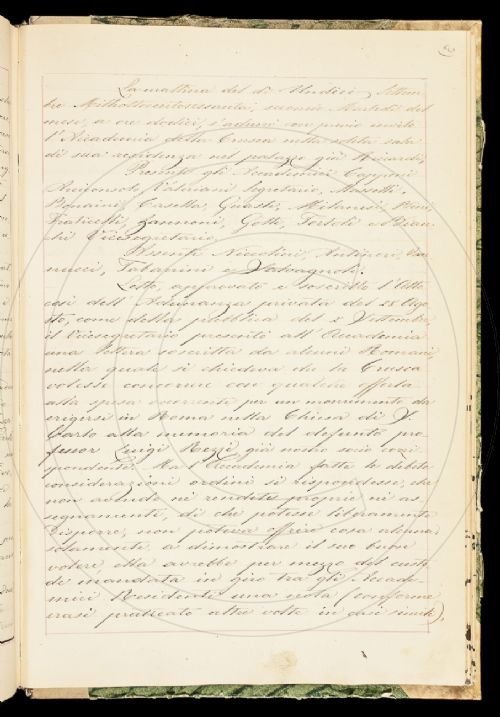 La mattina del dì Undici Settem-
bre Milleottocentosessanta, secondo Martedì del
mese, a ore dodici, s'adunò con primo invito
l'Accademia della Crusca nella solita sala
di sua residenza nel palazzo già Riccardi,
Presenti gli Accademici Capponi
Arciconsolo, Valeriani Segretario, Mossotti,
Bonaini, Casella, Guasti, Milanesi,
Fraticelli, Zannoni, Gotti, Tortoli e Bian-
chi Vicesegretario.
Assenti Niccolini, Antinori, Van-
nucci, Tabarrini e Salvagnoli.
Letto, approvato e soscritto l'Atto
così dell'Adunanza privata del 28 Ago-
sto, come della pubblica del 2 Settembre,
il Vicesegretario presentò all'Accademia
una lettera soscritta da alcuni Romani
nella quale si chiedeva che la Crusca
volesse concorrere con qualche offerta
alla spesa occorrente per un monumento da
erigersi in Roma nella Chiesa di S.
Carlo alla memoria del defunto pro-
fessor Luigi Rezzi, già nostro socio corri-
spondente. Ma l'Accademia fatte le debite
considerazioni ordinò si rispondesse, che
non avendo nè rendite proprie nè as-
segnamenti, di che potesse liberamente
disporre, non poteva offrire cosa alcuna:
solamente, a dimostrare il suo buon
volere, ella avrebbe per mezzo del custo-
de mandata in giro tra gli Accade-
mici Residenti una nota (conforme
erasi praticato altre volte in casi simili),